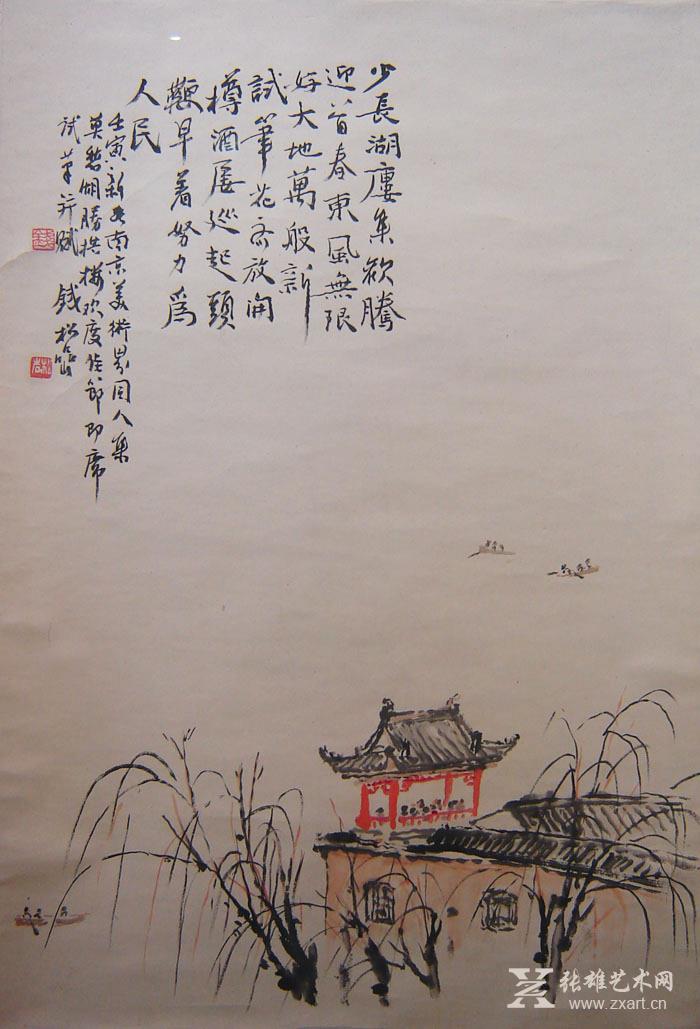 少長湖廔集欲騰
迎首春東風無限
好大地萬般新
試筆花齐放開
樽酒屡巡起頭
歡早着努力爲
人民
壬寅新春南京美術界同人集
莫愁湖勝棋樓欢度佳節即席
试筆并赋 錢松喦
张雄艺术网
www.zxart.cn